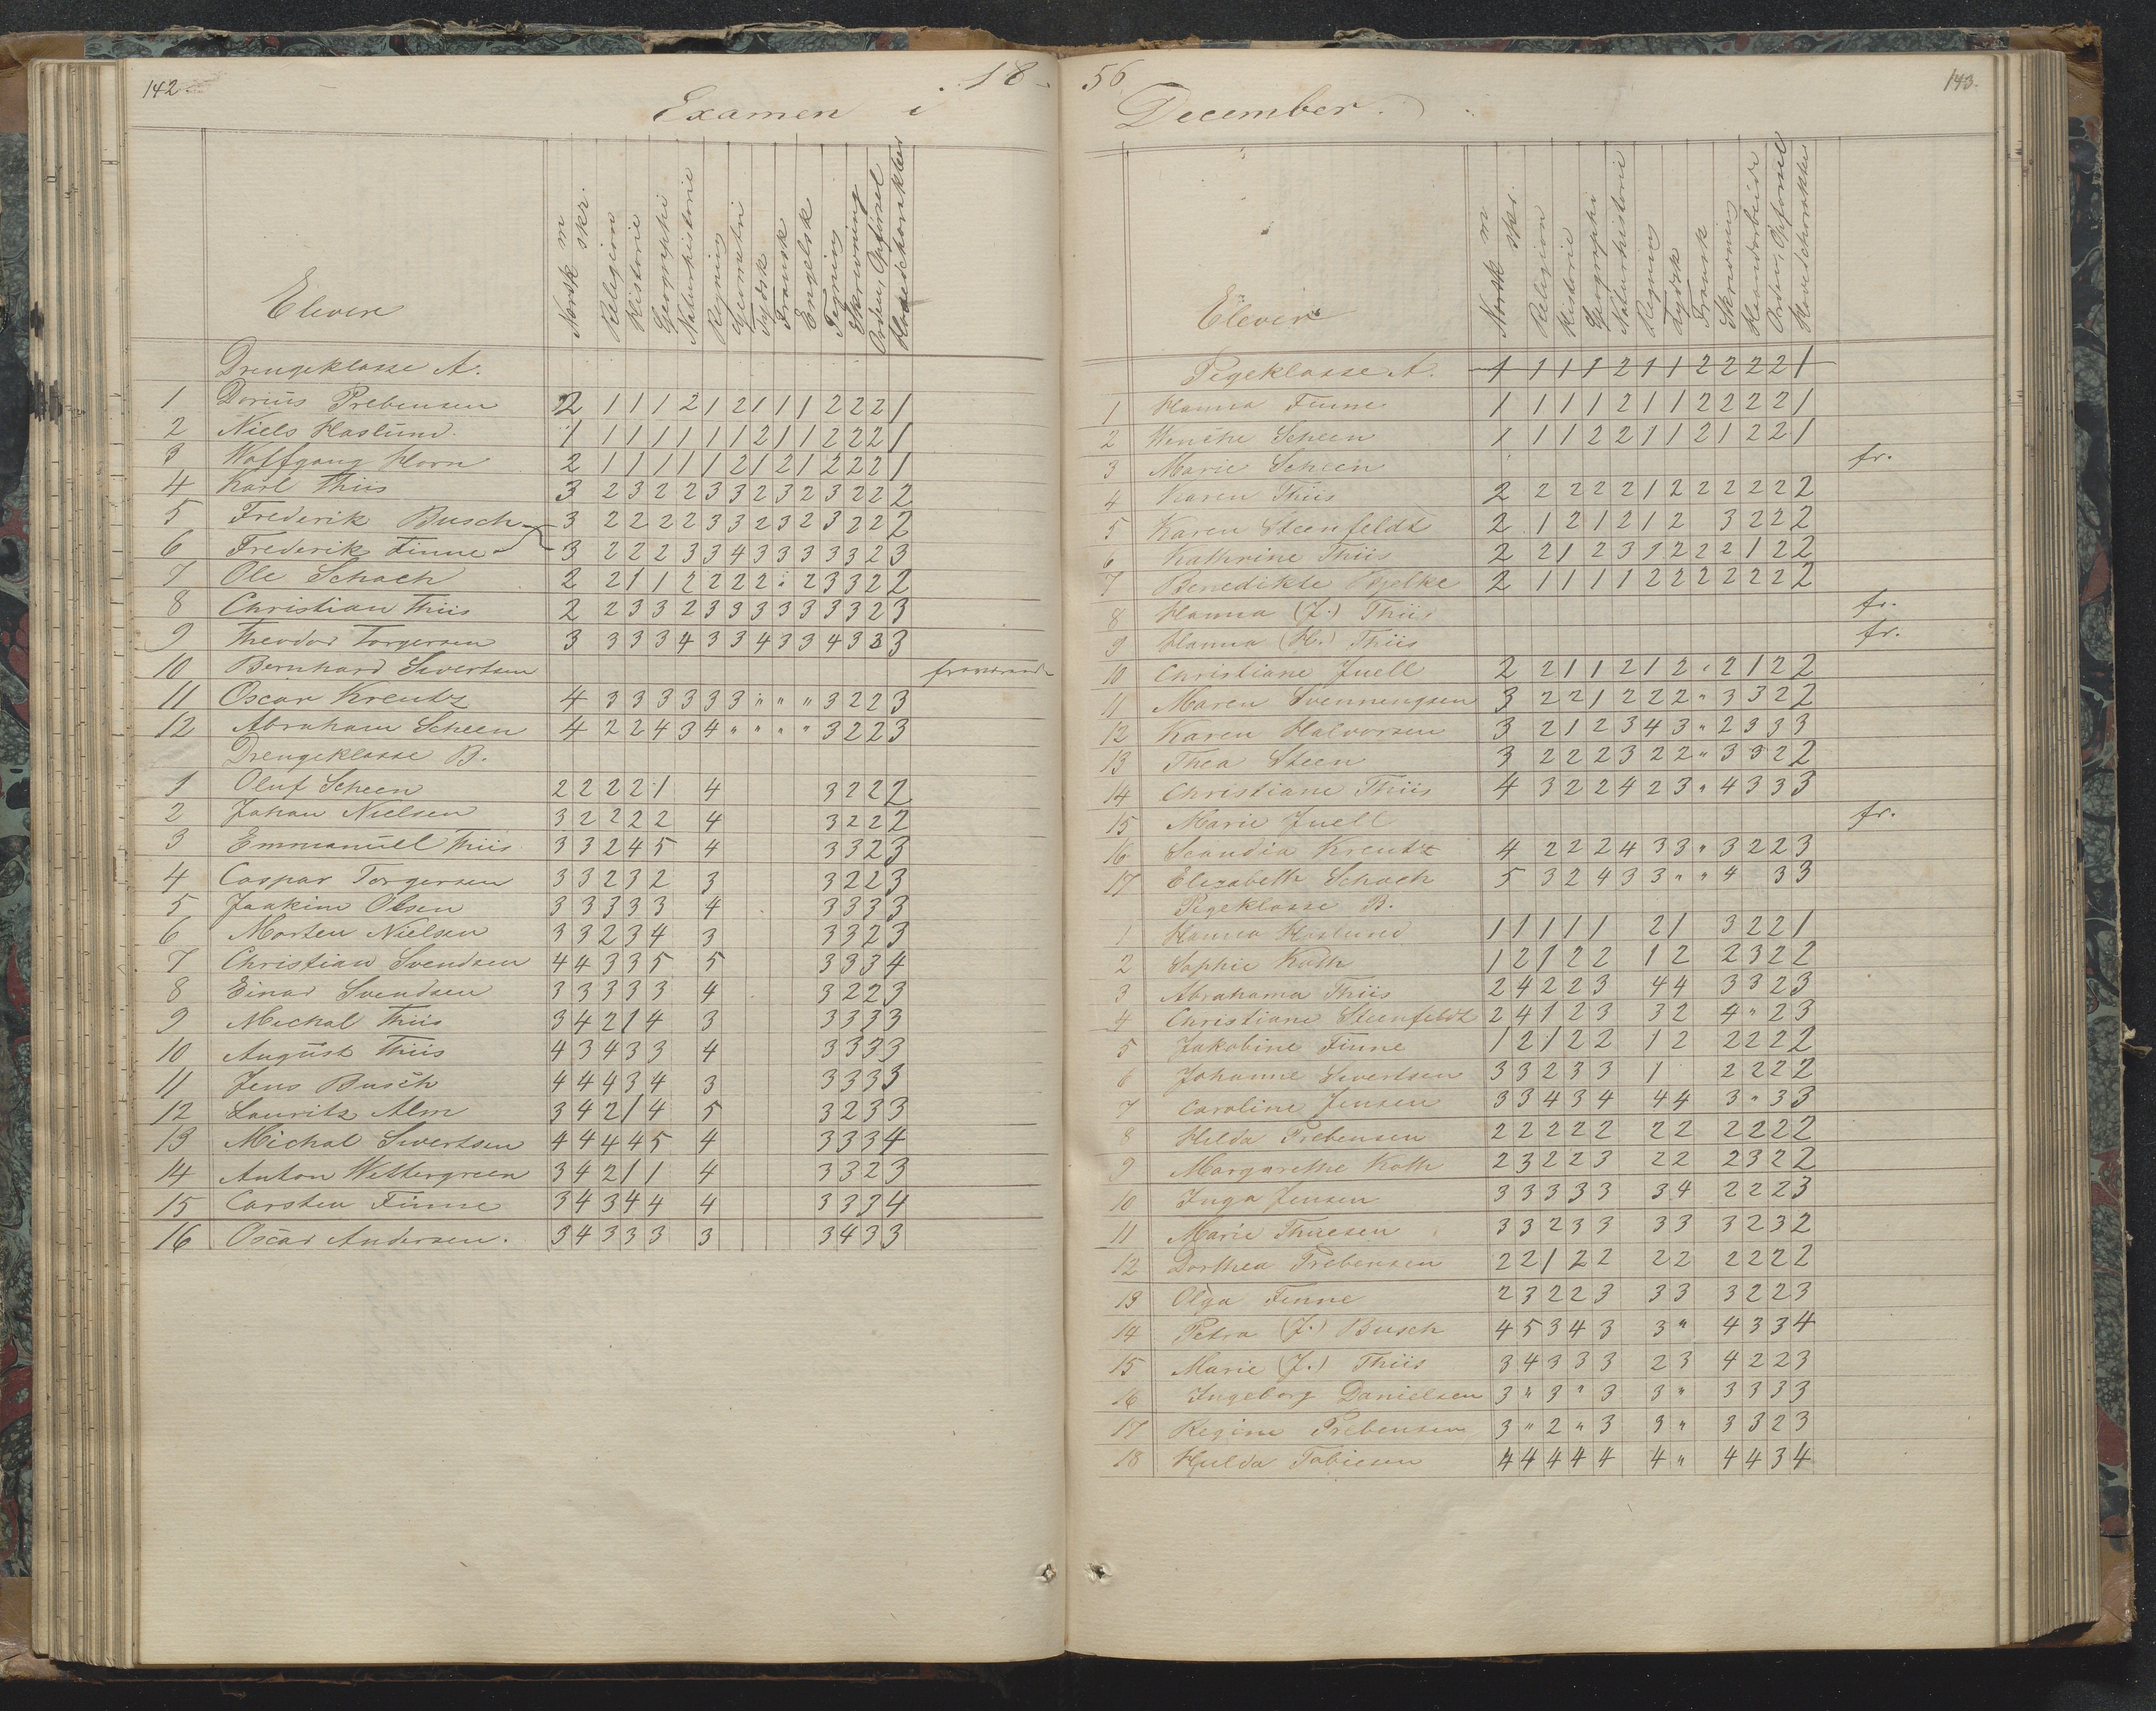 142
18
Examen i
Elever
Norsk m skr.
Religion
Historie
Geographi
Naturhistorie
Regning
Geometri
Tydsk
Fransk
Engelsk
Tegning
Skrivning
Orden, Opførsel
Hovedcharakter
Drengeklasse A.
1 Dorius Prebensen 2 1 1 1 2 1 2 1 1 1 2 2 2 1
2 Niels Haslund. 1 1 1 1 1 1 1 2 1 1 2 2 2 1
3 Wolfgang Horn 2 1 1 1 1 1 2 1 2 1 2 2 2 1
4 Karl Thiis 3 2 3 2 2 3 3 2 3 2 3 2 2 2
5 Frederik Busch 3 2 2 2 2 3 3 2 3 2 3 2 2 2
6 Frederik Finne 3 2 2 2 3 3 4 3 3 3 3 3 2 3
7 Ole Schach 2 2 1 1 2 2 2 2 : 2 3 3 2 2
8 Christian Thiis 2 2 3 3 2 3 3 3 3 3 3 3 2 3
9 Theodor Torgersen 3 3 3 3 4 3 3 4 3 3 4 3 3 3
10 Bernhard Sivertsen
11 Oscar Kreutz 4 3 3 3 3 3 3 " " " 3 2 2 3
12 Abraham Scheen 4 2 2 4 3 4 " " " " 3 2 2 3
Drengeklasse B.
1 Oluf Scheen 2 2 2 2 1 4 3 2 2 2
2 Johan Nielsen 3 2 2 2 2 4 3 2 2 2
3 Emmanuel Thiis 3 3 2 4 5 4 3 3 2 3
4 Caspar Torgersen 3 3 2 3 2 3 3 2 2 3
5 Joakim Olsen 3 3 3 3 3 4 3 3 3 3
6 Morten Nielsen 3 3 2 3 4 3 3 3 2 3
7 Christian Svendsen 4 4 3 3 5 5 3 3 3 4
8 Einar Svendsen 3 3 3 3 3 4 3 2 2 3
9 Michal Thiis 3 4 2 1 4 3 3 3 3 3
10 August Thiis 4 3 4 3 3 4 3 3 3 3
11 Jens Busch 4 4 4 3 4 3 3 3 3 3
12 Lauritz Alm 3 4 2 1 4 5 3 2 3 3
13 Michal Sivertsen 4 4 4 4 5 4 3 3 3 4
14 Anton Wettergreen 3 4 2 1 1 4 3 3 2 3
15 Carsten Finne 3 4 3 4 4 4 3 3 3 4
16 Oscar Andersen. 3 4 3 3 3 3 3 4 3 3
56
143.
December.
Elever
Norsk m skr.
Religion
Historie
Geographi
Naturhistorie
Regning
Tydsk
Fransk
Skrivning
Haandarbeide
Orden, Opførsel
Hovedcharakter
Pigeklasse A. 1 1 1 1 2 1 1 2 2 2 2 1
1 Hanna Finne 1 1 1 1 2 1 1 2 2 2 2 1
2 Wenche Scheen 1 1 1 2 2 1 1 2 1 2 2 1
3 Marie Scheen fr.
4 Karen Thiis 2 2 2 2 2 1 2 2 2 2 2 2
5 Karen Steenfeldt 2 1 2 1 2 1 2 3 2 2 2
6 Kathrine Thiis 2 2 1 2 3 1 2 2 2 1 2 2
7 Benedikte 2 1 1 1 1 2 2 2 2 2 2 2
8 Hanna (J.) Thiis fr.
9 Hanna (H.) Thiis fr.
10 Christiane Juell 2 2 1 1 2 1 2 " 2 1 2 2
11 Maren Svenningsen 3 2 2 1 2 2 2 " 3 3 2 2
12 Karen Halvorsen 3 2 1 2 3 4 3 " 2 3 3 3
13 Thea Steen 3 2 2 2 3 2 2 " 3 3 2 2
14 Christiane Thiis 4 3 2 2 4 2 3 " 4 3 3 3
15 Marie Juell fr.
16 Scandia Kreutz 4 2 2 2 4 3 3 " 3 2 2 3
17 Elisabeth Schach 5 3 2 4 3 3 " " 4 3 3
Pigeklasse B.
1 Hanna Haslund 1 1 1 1 1 2 1 3 2 2 1
2 Sophie Koth 1 2 1 2 2 1 2 2 3 2 2
3 Abrahama Thiis 2 4 2 2 3 4 4 3 3 2 3
4 Christiane Steenfeldt 2 4 1 2 3 3 2 4 " 2 3
5 Jakobine Finne 1 2 1 2 2 1 2 2 2 2 2
6 Johanne Sivertsen 3 3 2 3 3 1 2 2 2 2
7 Caroline Jensen 3 3 4 3 4 4 4 3 " 3 3
8 Hilda Prebensen 2 2 2 2 2 2 2 2 2 2 2
9 Margarethe Koth 2 3 2 2 3 2 2 2 3 2 2
10 Inga Jensen 3 3 3 3 3 3 4 2 2 2 3
11 Marie Thuesen 3 3 2 3 3 3 3 3 2 3 2
12 Dorthea Prebensen 2 2 1 2 2 2 2 2 2 2 2
13 Olga Finne 2 3 2 2 3 3 3 3 2 2 3
14 Petra (J.) Busch 4 5 3 4 3 3 " 4 3 3 4
15 Marie (J.) Thiis 3 4 3 3 3 2 3 4 2 2 3
16 Ingeborg Danielsen 3 " 3 " 3 3 " 3 3 3 3
17 Regine Prebensen 3 " 2 " 3 3 " 3 3 2 3
18 Hulda Tobiesen 4 4 4 4 4 4 " 4 4 3 4